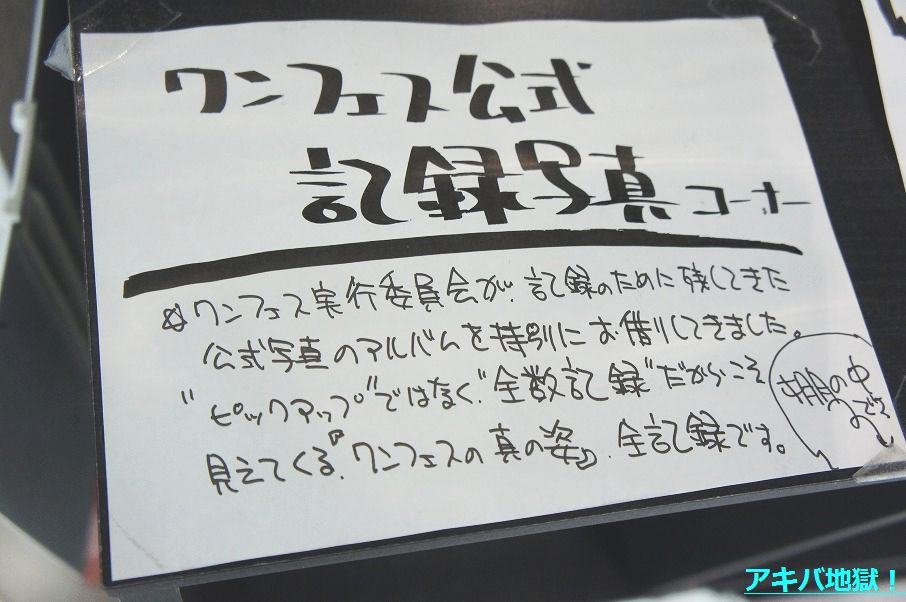 ワンフェス公式
記録写真コーナー
☆ワンフェス実行委員会が、記録のために残してきた
公式写真のアルバムを特別にお借りしてきました。
"ピックアップ"ではなく、"全数記録"だからこそ
見えてくる、『ワンフェスの真の姿』、全記録です。
棚の中
アキバ地獄!